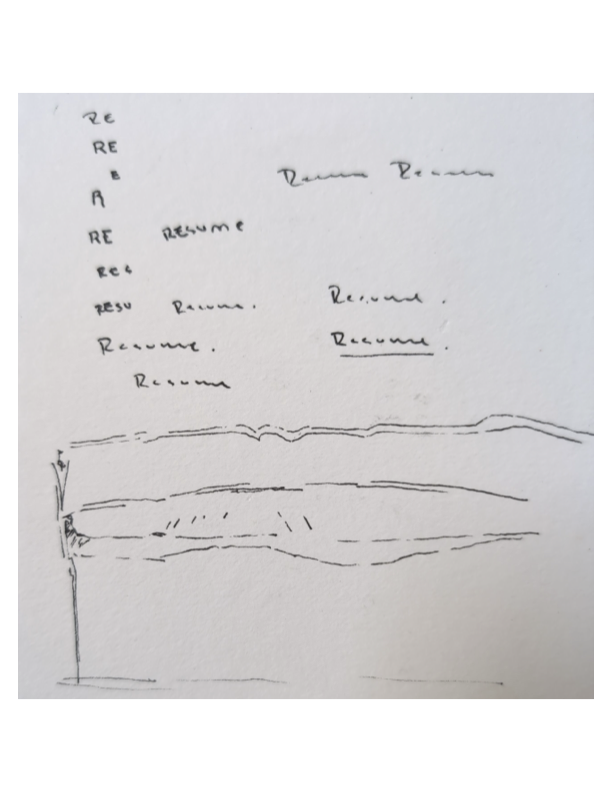 RE
RE
E
R
Resume Resume
RE RESUME
RES
RESU Resume.
Resume.
Resume.
Resume.
Resume